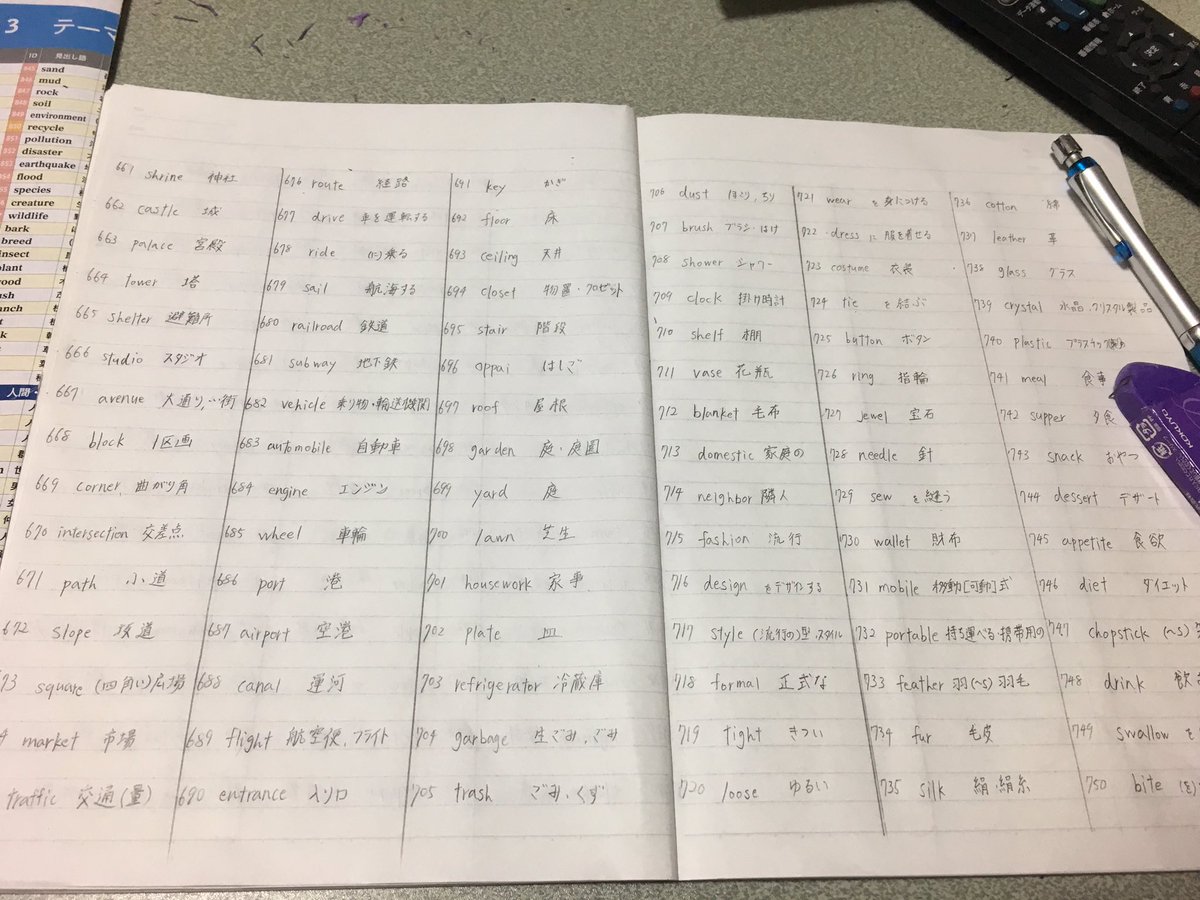 3 テーマ
ID 見出し語
845 sand
846 mud
847 rock
848 soil
849 environment
850 recycle
851 pollution
852 disaster
853 earthquake
flood
species
creature
wildlife
bark
breed
insect
plant
人間・
661 shrine 神社
662 castle 城
663 palace 宮殿
664 tower 塔
665 shelter 避難所
666 studio スタジオ
667 avenue 大通り,~街
668 block 1区画
669 corner 曲がり角
670 intersection 交差点
671 path 小道
672 slope 坂道
73 square (四角い)広場
market 市場
traffic 交通(量)
676 route 経路
677 drive 車を運転する
678 ride (に)乗る
679 sail 航海する
680 railroad 鉄道
681 subway 地下鉄
682 vehicle 乗り物・輸送機関
683 automobile 自動車
684 engine エンジン
685 wheel 車輪
686 port 港
687 airport 空港
688 canal 運河
689 flight 航空便,フライト
690 entrance 入り口
691 key かぎ
692 floor 床
693 ceiling 天井
694 closet 物置・クロゼット
695 stair 階段
696 oppai はしご
697 roof 屋根
698 garden 庭・庭園
699 yard 庭
700 lawn 芝生
701 housework 家事
702 plate 皿
703 refrigerator 冷蔵庫
704 garbage 生ごみ,ごみ
705 trash ごみ・くず
706 dust ほこり,ちり
707 brush ブラシ・はけ
708 shower シャワー
709 clock 掛け時計
710 shelf 棚
711 vase 花瓶
712 blanket 毛布
713 domestic 家庭の
714 neighbor 隣人
715 fashion 流行
716 design をデザインする
717 style (流行の)型,スタイル
718 formal 正式な
719 tight きつい
720 loose ゆるい
721 wear を身につける
722 dress に服を着せる
723 costume 衣装
724 tie を結ぶ
725 button ボタン
726 ring 指輪
727 jewel 宝石
728 needle 針
729 sew を縫う
730 wallet 財布
731 mobile 移動[可動]式
732 portable 持ち運べる・携帯用の
733 feather 羽(~s)羽毛
734 fur 毛皮
735 silk 絹・絹糸
736 cotton 綿
737 leather 革
738 glass グラス
739 crystal 水晶,クリスタル製品
740 plastic プラスチック製の
741 meal 食事
742 supper 夕食
743 snack おやつ
744 dessert デザート
745 appetite 食欲
746 diet ダイエット
747 chopstick (~s)
748 drink 飲
749 swallow を
750 bite (を)